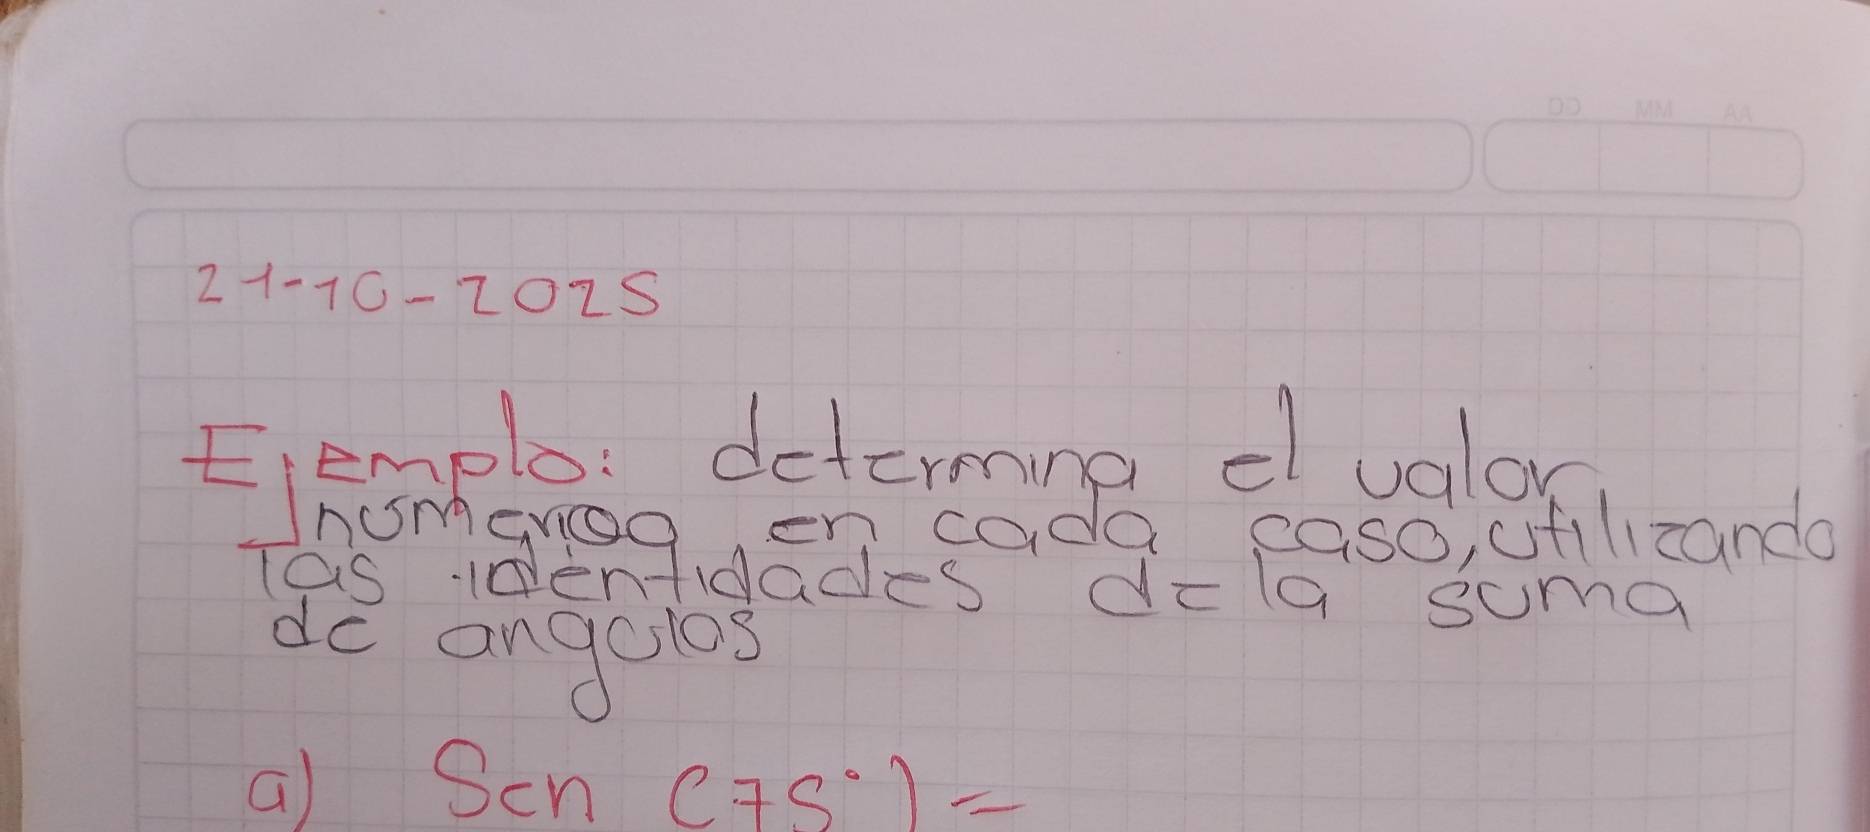 DD MM AA
21-10-2025
Ejemplo: determina el valor
numerico en cada caso, utilizando
las identidades de la suma
de angulos
a) Sen (75°) =